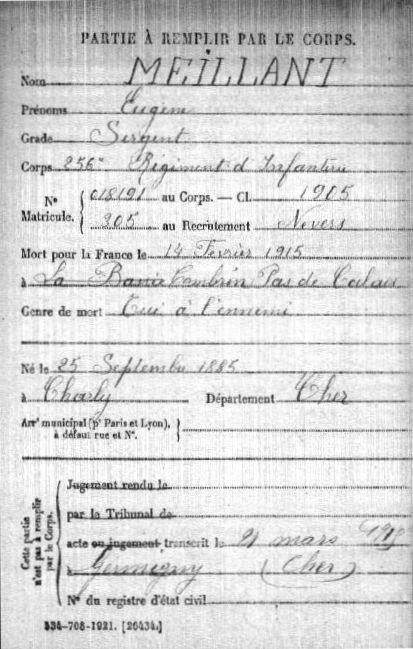 PARTIE À REMPLIR PAR LE CORPS.
Nom MEILLANT
Prénoms Eugène
Grade Sergent
Corps 256e Régiment d'Infanterie
N° Matricule. { 018191 au Corps. — Cl. 1905
205 au Recrutement Nevers
Mort pour la France le 14 Février 1915
à La Cambrin Pas de Calais
Genre de mort Tué à l'ennemi
Né le 25 Septembre 1885
à Charly Département Cher
Arrt municipal (pr Paris et Lyon),
à défaut rue et N°.
Cette partie n'est pas à remplir par le Corps.
Jugement rendu le
par le Tribunal de
acte ou jugement transcrit le 21 mars
à Germigny (Cher)
N° du registre d'état civil
534-708-1921. [26434.]